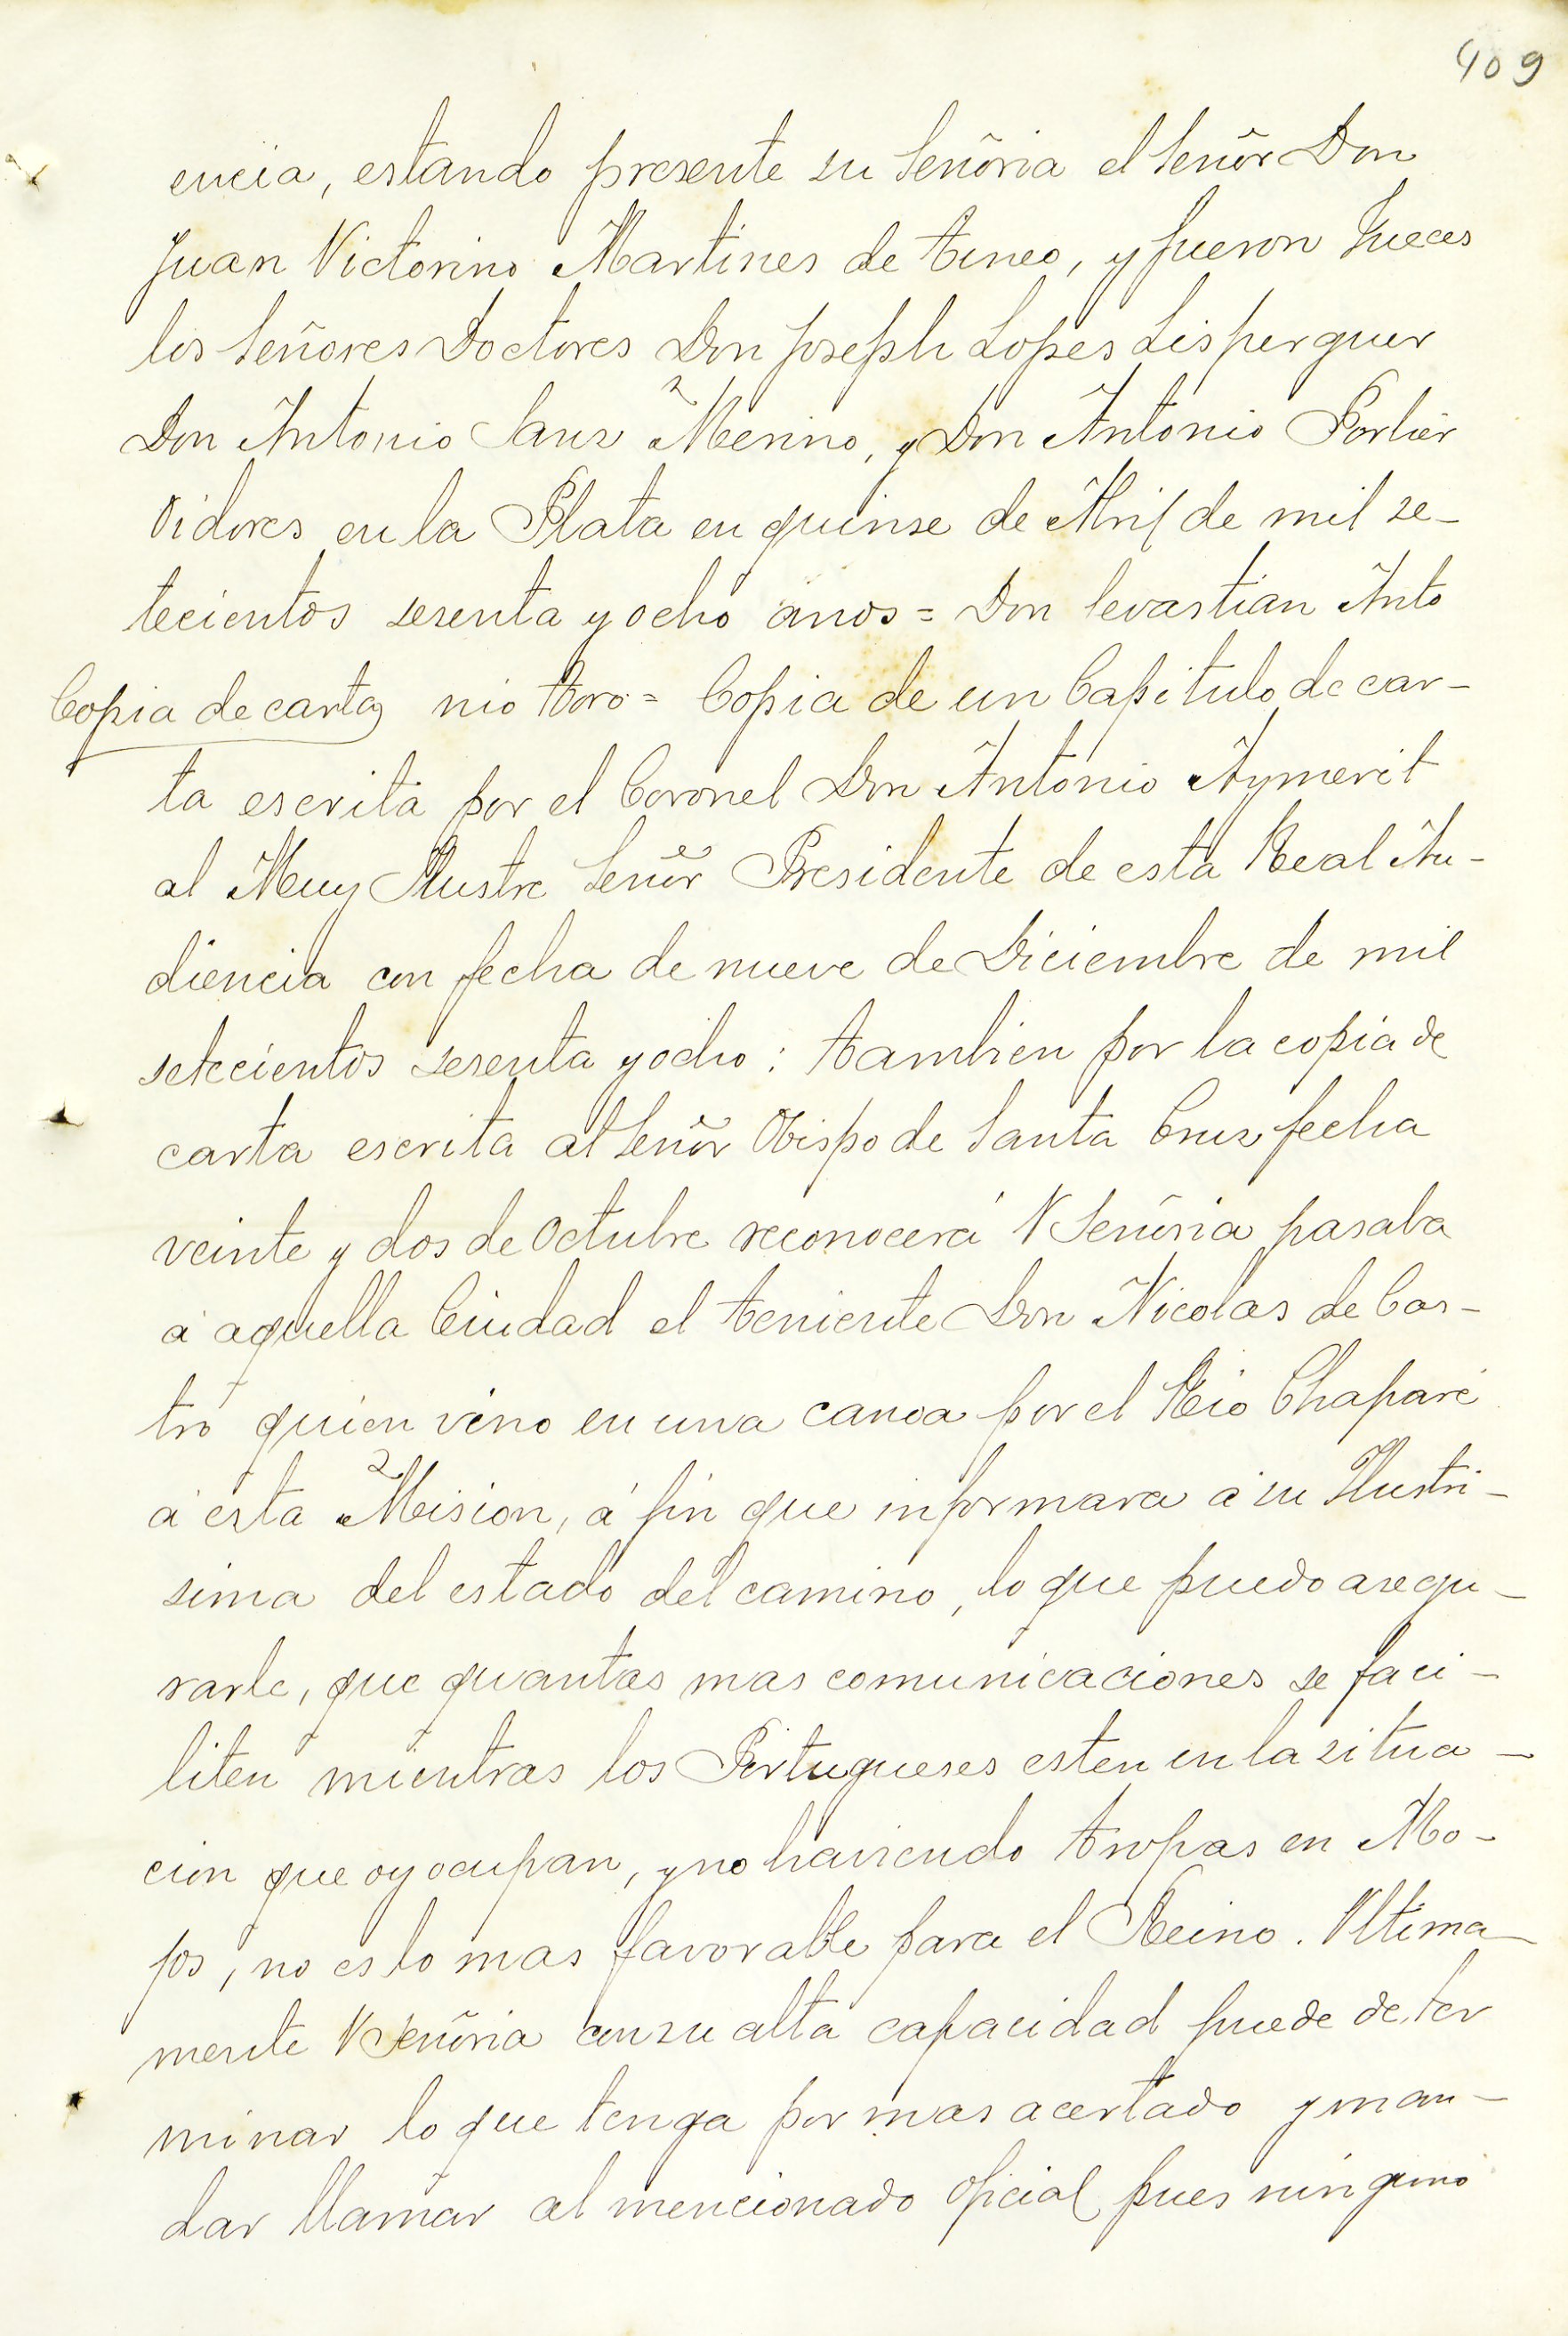 409
encia, estando presente su Señoria el Señor Don
Juan Victorino Martines de Tineo, y fueron Jueces
los Señores Doctores Don Joseph Lopes Lisperguer
Don Antonio Sanz Merino, y Don Antonio Porlier
Oidores en la Plata en quinse de Abril de mil se-
tecientos sesenta y ocho años = Don Sevastian Anto
Copia de carta nio Toro = Copia de un Capitulo de car-
ta escrita por el Coronel Don Antonio Aymerit
al Muy Ilustre Señor Presidente de esta Real Au-
diencia con fecha de nueve de Diciembre de mil
setecientos sesenta y ocho: tambien por la copia de
carta escrita al Señor Obispo de Santa Cruz fecha
veinte y dos de Octubre reconocerá V Señoria pasaba
á aquella Ciudad el teniente Don Nicolas de Cas-
tro quien vino en una canoa por el Rio Chaparé
á esta Mision, á fin que informara á su Ilustri-
sima del estado del camino, lo que puedo asegu-
rarle, que quantas mas comunicaciones se faci-
liten mientras los Portugueses esten en la situa-
cion que oy ocupan, y no haviendo tropas en Mo-
jos, no es lo mas favorable para el Reino. Ultima-
mente V Señoria con su alta capacidad puede deter
minar lo que tenga por mas acertado y man-
dar llamar al mencionado oficial pues ninguno